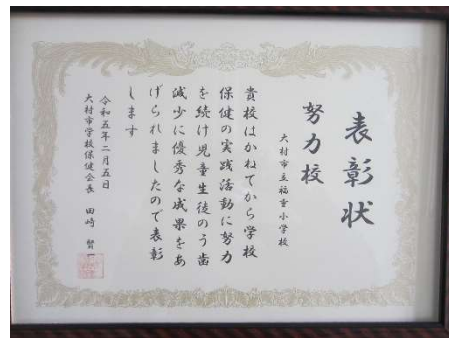 表彰状
努力校
大村市立福重小学校
貴校はかねてから学校
保健の実践活動に努力
を続け児童生徒のう歯
減少に優秀な成果をあ
げられましたので表彰
します
令和五年二月五日
大村市学校保健会長 田崎 賢一